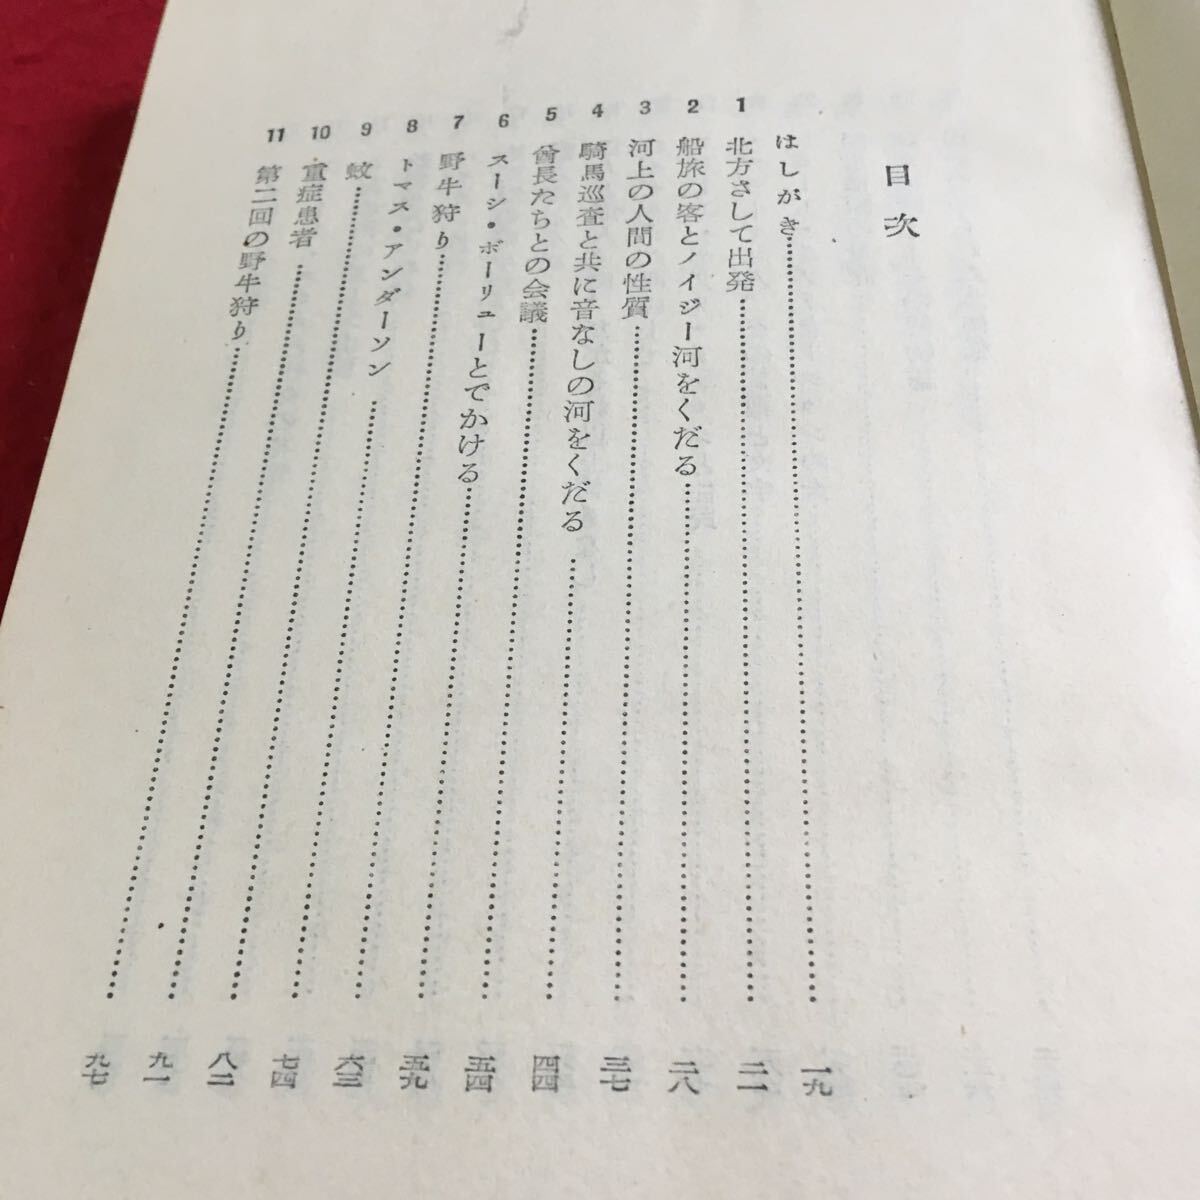 目次
はしがき……一九
1 北方さして出発……二一
2 船旅の客とノイジー河をくだる……二八
3 河上の人間の性質……三七
4 騎馬巡査と共に音なしの河をくだる……四四
5 酋長たちとの会議……五四
6 スーシ・ボーリューとでかける……五九
7 野牛狩り……六三
8 トマス・アンダーソン……七四
9 蚊……八二
10 重症患者……九一
11 第二回の野牛狩り……九七